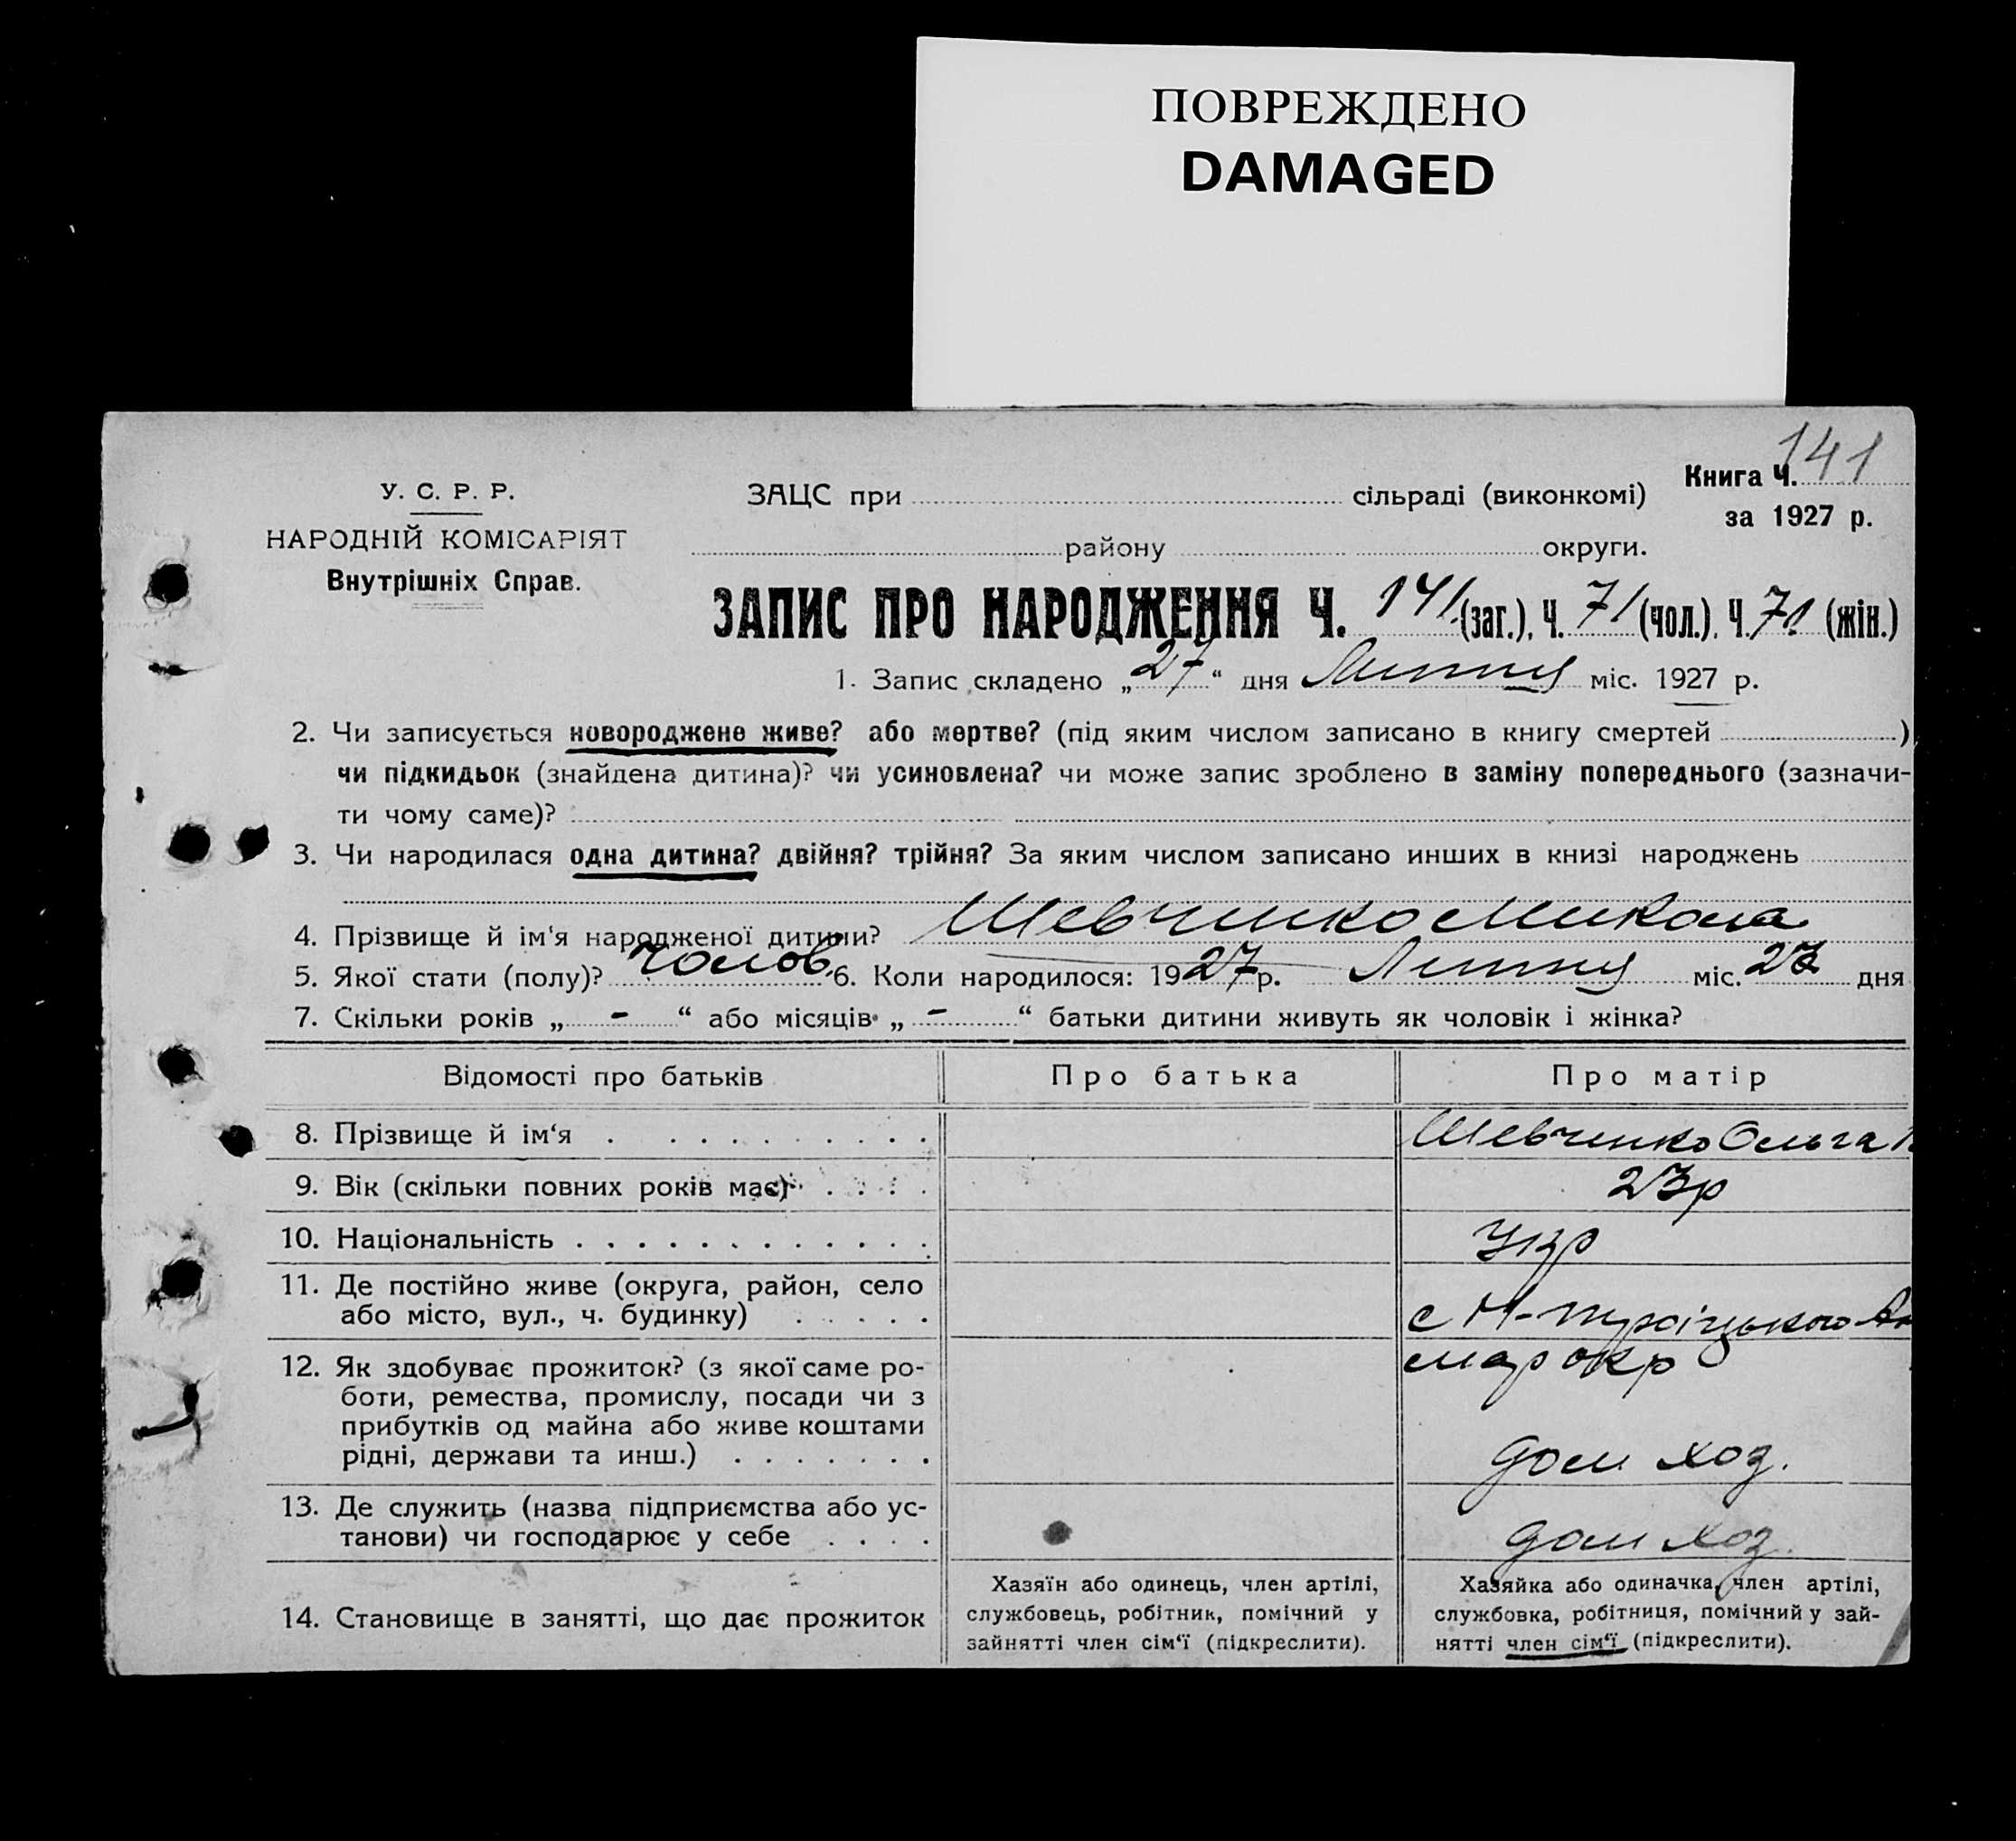 ПОВРЕЖДЕНО
DAMAGED
141
Книга Ч.
за 1927 р.
У. С. Р. Р.
НАРОДНІЙ КОМІСАРІЯТ
Внутрішніх Справ.
ЗАЦС при сільраді (виконкомі)
району округи.
ЗАПИС ПРО НАРОДЖЕННЯ Ч. 141 (заг.), Ч. 71 (чол.), Ч. 71 (жін.)
1. Запис складено „27“ дня Липня міс. 1927 р.
2. Чи записується новороджене живе? або мертве? (під яким числом записано в книгу смертей )
чи підкидьок (знайдена дитина)? чи усиновлена? чи може запис зроблено в заміну попереднього (зазначи-
ти чому саме)?
3. Чи народилася одна дитина? двійня? трійня? За яким числом записано инших в книзі народжень
4. Прізвище й ім'я народженої дитини? Шевченко Микола
5. Якої стати (полу)? чолов. 6. Коли народилося: 1927 р. Липня міс. дня
7. Скільки років „ - “ або місяців „ - “ батьки дитини живуть як чоловік і жінка?
Відомості про батьків Про батька Про матір
8. Прізвище й ім‘я Шевченко Ольга
9. Вік (скільки повних років має) 23р
10. Національність Укр
11. Де постійно живе (округа, район, село
або місто, вул., ч. будинку) с Н-Троіцького
мар окр
12. Як здобуває прожиток? (з якої саме ро-
боти, ремества, промислу, посади чи з
прибутків од майна або живе коштами
рідні, держави та инш.) дом хоз.
13. Де служить (назва підприємства або ус-
танови) чи господарює у себе дом хоз.
14. Становище в занятті, що дає прожиток
Хазяїн або одинець, член артілі,
службовець, робітник, помічний у
зайнятті член сім‘ї (підкреслити).
Хазяйка або одиначка, член артілі,
службовка, робітниця, помічний у зай-
нятті член сім‘ї (підкреслити).